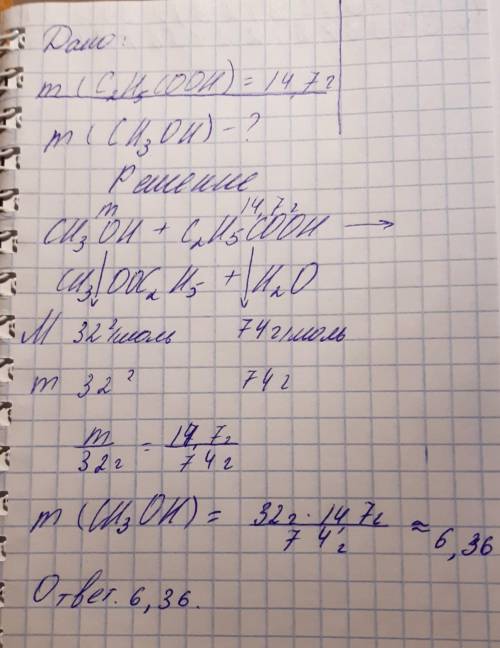 Дано:
m (C₂H₅COOH) = 14,7г
m (CH₃OH) - ?
Решение
m 14,7г
CH₃OH + C₂H₅COOH →
CH₃OOC₂H₅ + H₂O
M 32г/моль 74г/моль
m 32г 74г
m/32г = 14,7г/74г
m (CH₃OH) = 32г · 14,7г/74г ≈ 6,36
Ответ. 6,36.